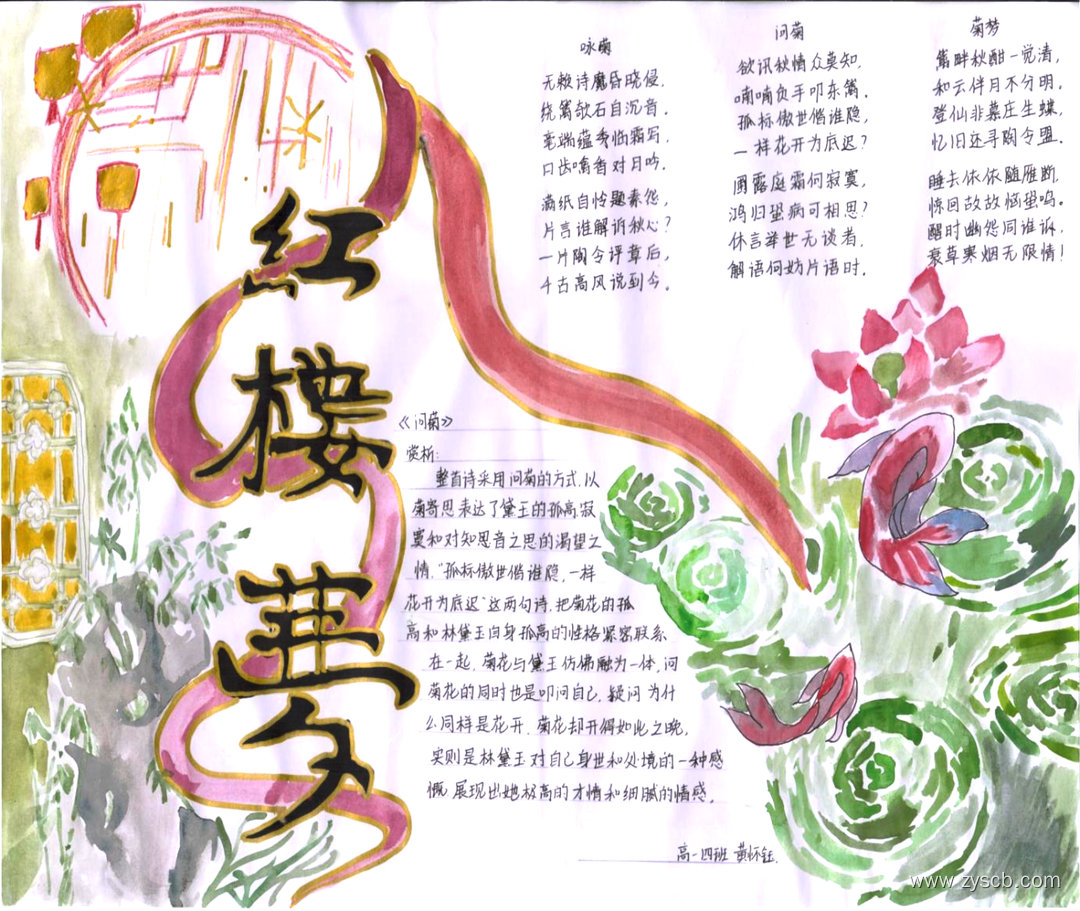 紅樓夢
咏菊
无赖诗魔昏晓侵,
绕篱欹石自沉音,
毫端蕴秀临霜写,
口齿噙香对月吟,
满纸自怜题素怨,
片言谁解诉秋心?
一片陶令评章后,
千古高风说到今。
问菊
欲讯秋情众莫知,
喃喃负手叩东篱,
孤标傲世偕谁隐,
一样花开为底迟?
圃露庭霜何寂寞,
鸿归蛩病可相思?
休言举世无谈者,
解语何妨片语时.
菊梦
篱畔秋酣一觉清,
和云伴月不分明,
登仙非慕庄生蝶,
忆旧还寻陶令盟.
睡去依依随雁断,
惊回故故恼蛩鸣。
醒时幽怨同谁诉,
衰草寒烟无限情!
《问菊》
赏析:
整首诗采用问菊的方式,以
菊寄思表达了黛玉的孤高寂
寞和对知恩音之思的渴望之
情,“孤标傲世偕谁隐,一样
花开为底迟”这两句诗,把菊花的孤
高和林黛玉自身孤高的性格紧密联系
在一起,菊花与黛玉仿佛融为一体,问
菊花的同时也是叩问自己,疑问为什
么同样是花开,菊花却开得如此之晚,
实则是林黛玉对自己身世和处境的一种感
慨,展现出她极高的才情和细腻的情感。
高一四班 黄怀钰
www.zyscb.com